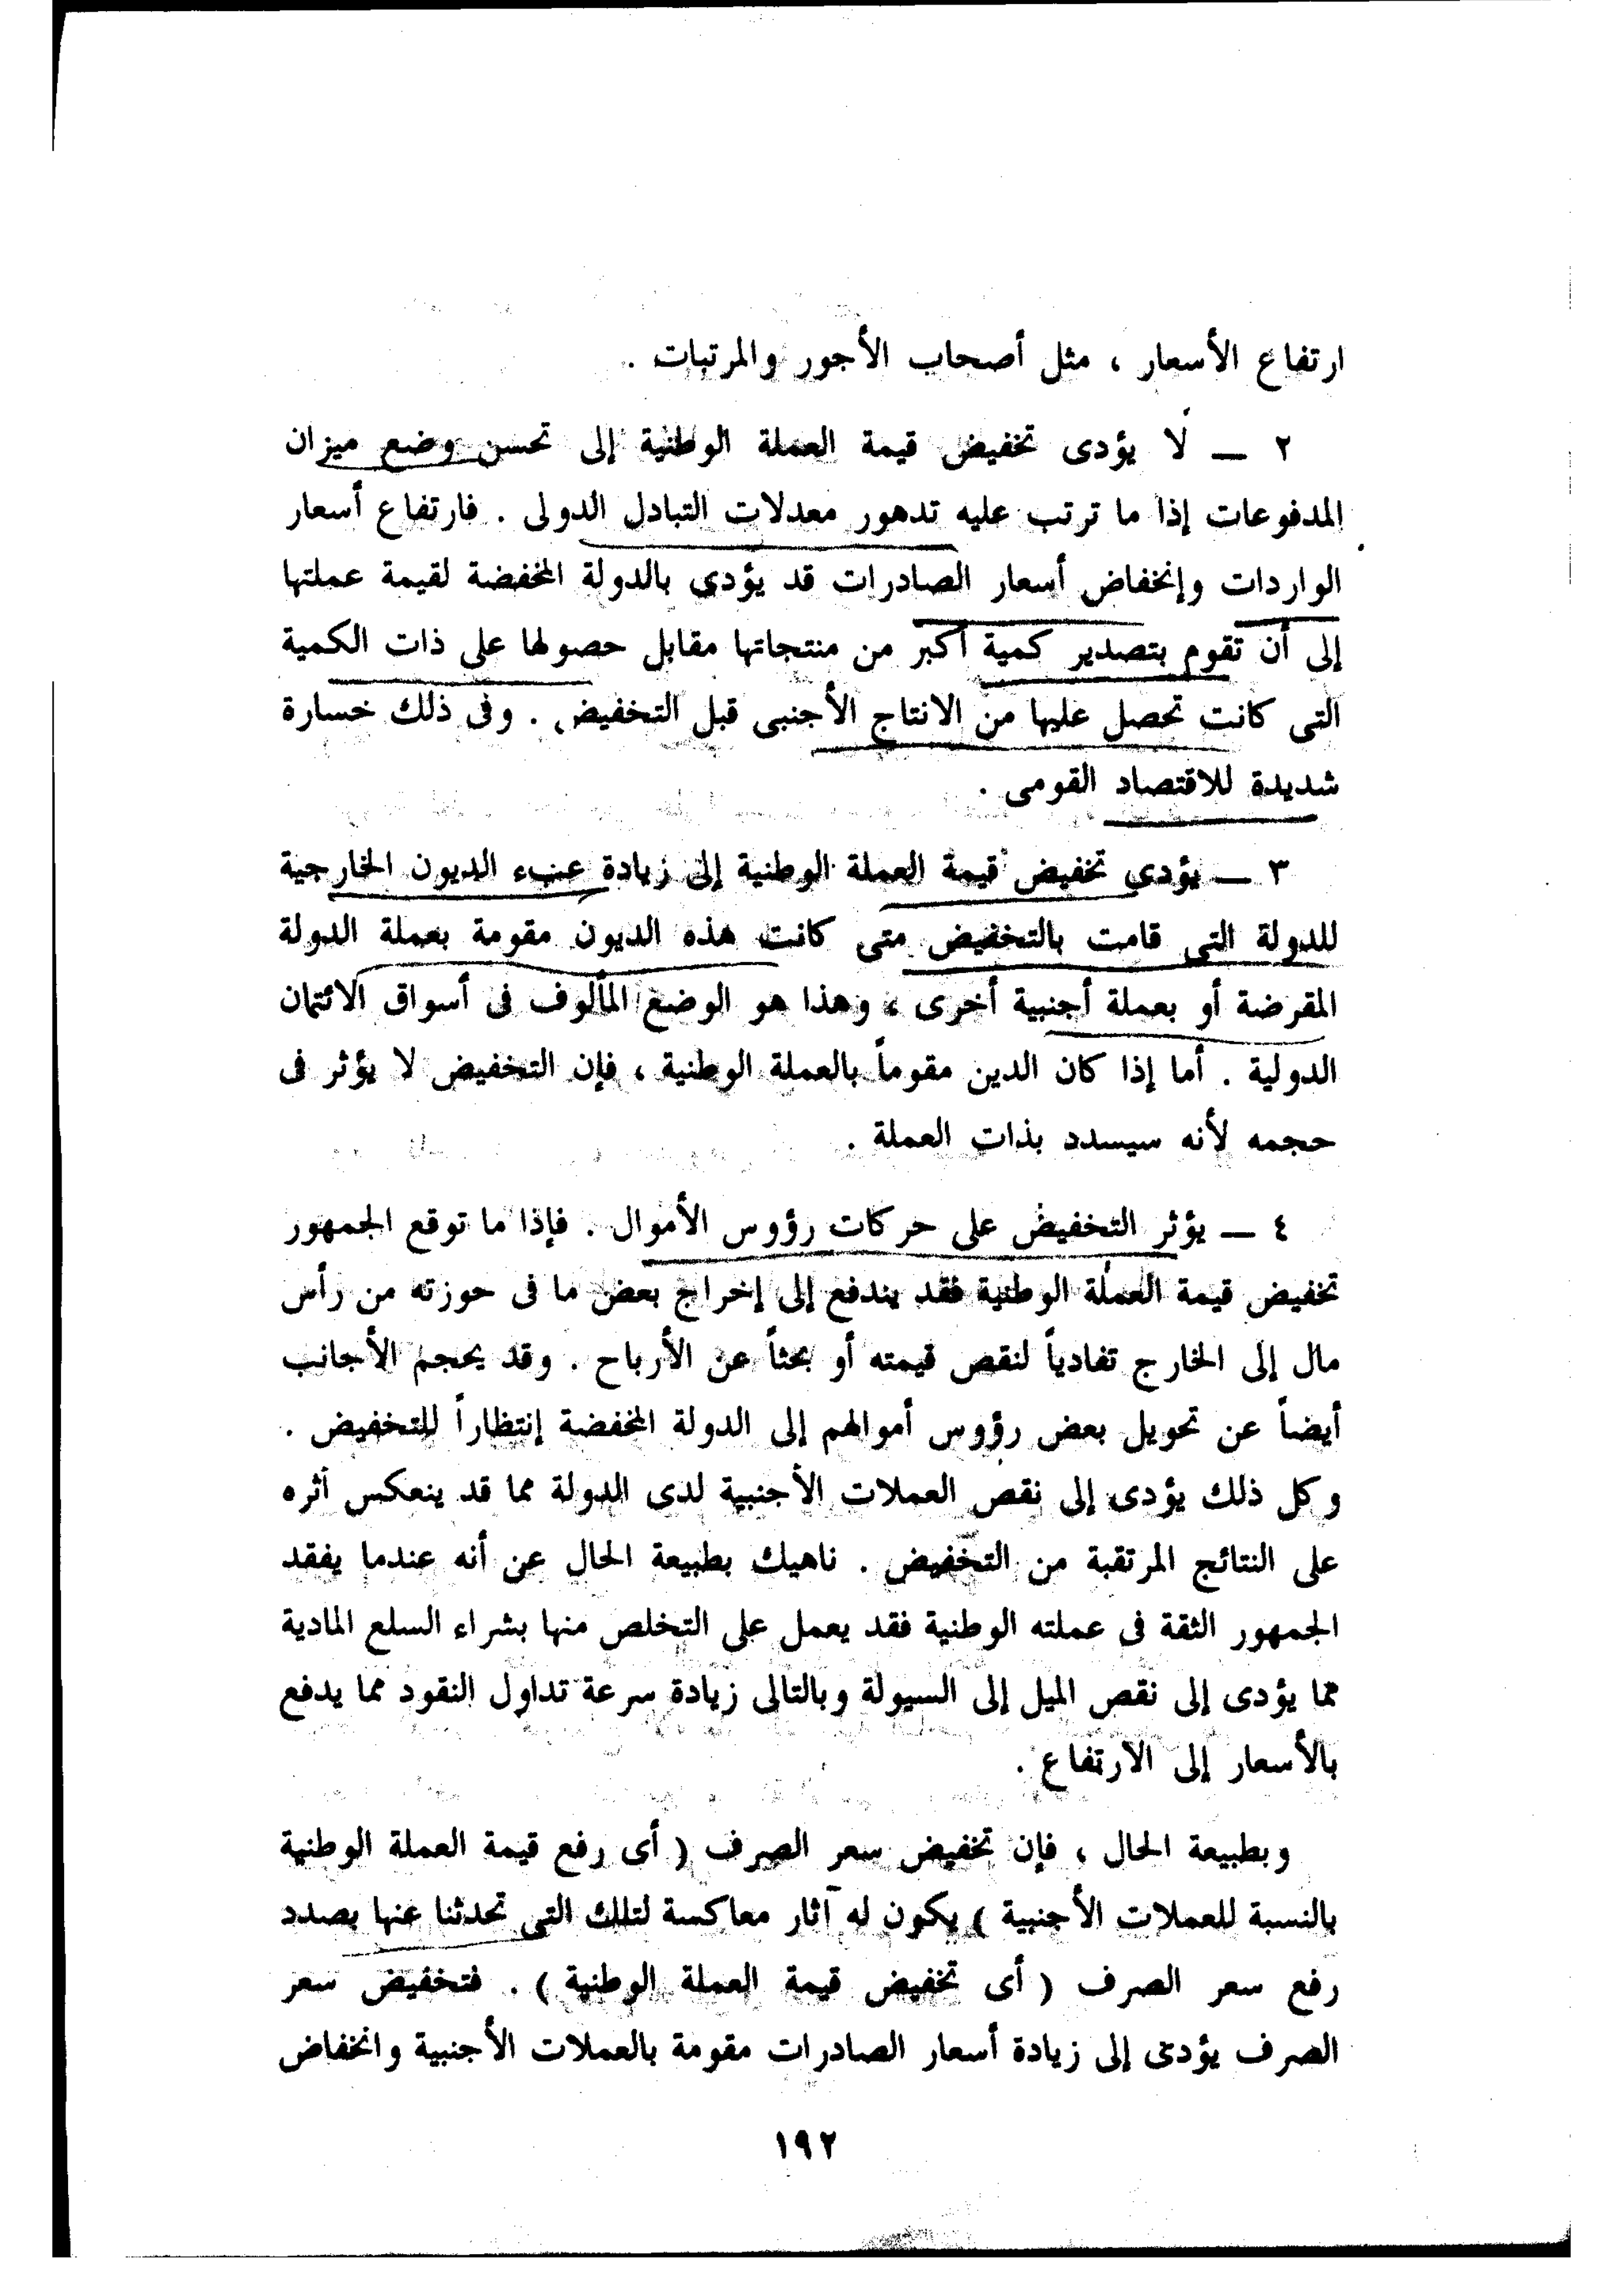 ارتفاع الأسعار ، مثل أصحاب الأجور والمرتبات .
٢ ــ لا يؤدى تخفيض قيمة العملة الوطنية إلى تحسن وضع ميزان
المدفوعات إذا ما ترتب عليه تدهور معدلات التبادل الدولى . فارتفاع أسعار
الواردات وإنخفاض أسعار الصادرات قد يؤدى بالدولة المخفضة لقيمة عملتها
إلى أن تقوم بتصدير كمية أكبر من منتجاتها مقابل حصولها على ذات الكمية
التى كانت تحصل عليها من الانتاج الأجنبى قبل التخفيض . وفى ذلك خسارة
شديدة للاقتصاد القومى .
٣ ــ يؤدى تخفيض قيمة العملة الوطنية إلى زيادة عبء الديون الخارجية
للدولة التى قامت بالتخفيض متى كانت هذه الديون مقومة بعملة الدولة
المقرضة أو بعملة أجنبية أخرى ، وهذا هو الوضع المألوف فى أسواق الائتمان
الدولية . أما إذا كان الدين مقوماً بالعملة الوطنية ، فإن التخفيض لا يؤثر فى
حجمه لأنه سيسدد بذات العملة .
٤ ــ يؤثر التخفيض على حركات رؤوس الأموال . فإذا ما توقع الجمهور
تخفيض قيمة العملة الوطنية فقد يندفع إلى إخراج بعض ما فى حوزته من رأس
مال إلى الخارج تفادياً لنقص قيمته أو بحثاً عن الأرباح . وقد يحجم الأجانب
أيضاً عن تحويل بعض رؤوس أموالهم إلى الدولة المخفضة إنتظاراً للتخفيض .
وكل ذلك يؤدى إلى نقص العملات الأجنبية لدى الدولة مما قد ينعكس أثره
على النتائج المرتقبة من التخفيض . ناهيك بطبيعة الحال عن أنه عندما يفقد
الجمهور الثقة فى عملته الوطنية فقد يعمل على التخلص منها بشراء السلع المادية
مما يؤدى إلى نقص الميل إلى السيولة وبالتالى زيادة سرعة تداول النقود مما يدفع
بالأسعار إلى الارتفاع .
وبطبيعة الحال ، فإن تخفيض سعر الصرف ( أى رفع قيمة العملة الوطنية
بالنسبة للعملات الأجنبية ) يكون له آثار معاكسة لتلك التى تحدثنا عنها بصدد
رفع سعر الصرف ( أى تخفيض قيمة العملة الوطنية ) . فتخفيض سعر
الصرف يؤدى إلى زيادة أسعار الصادرات مقومة بالعملات الأجنبية وانخفاض
١٩٢